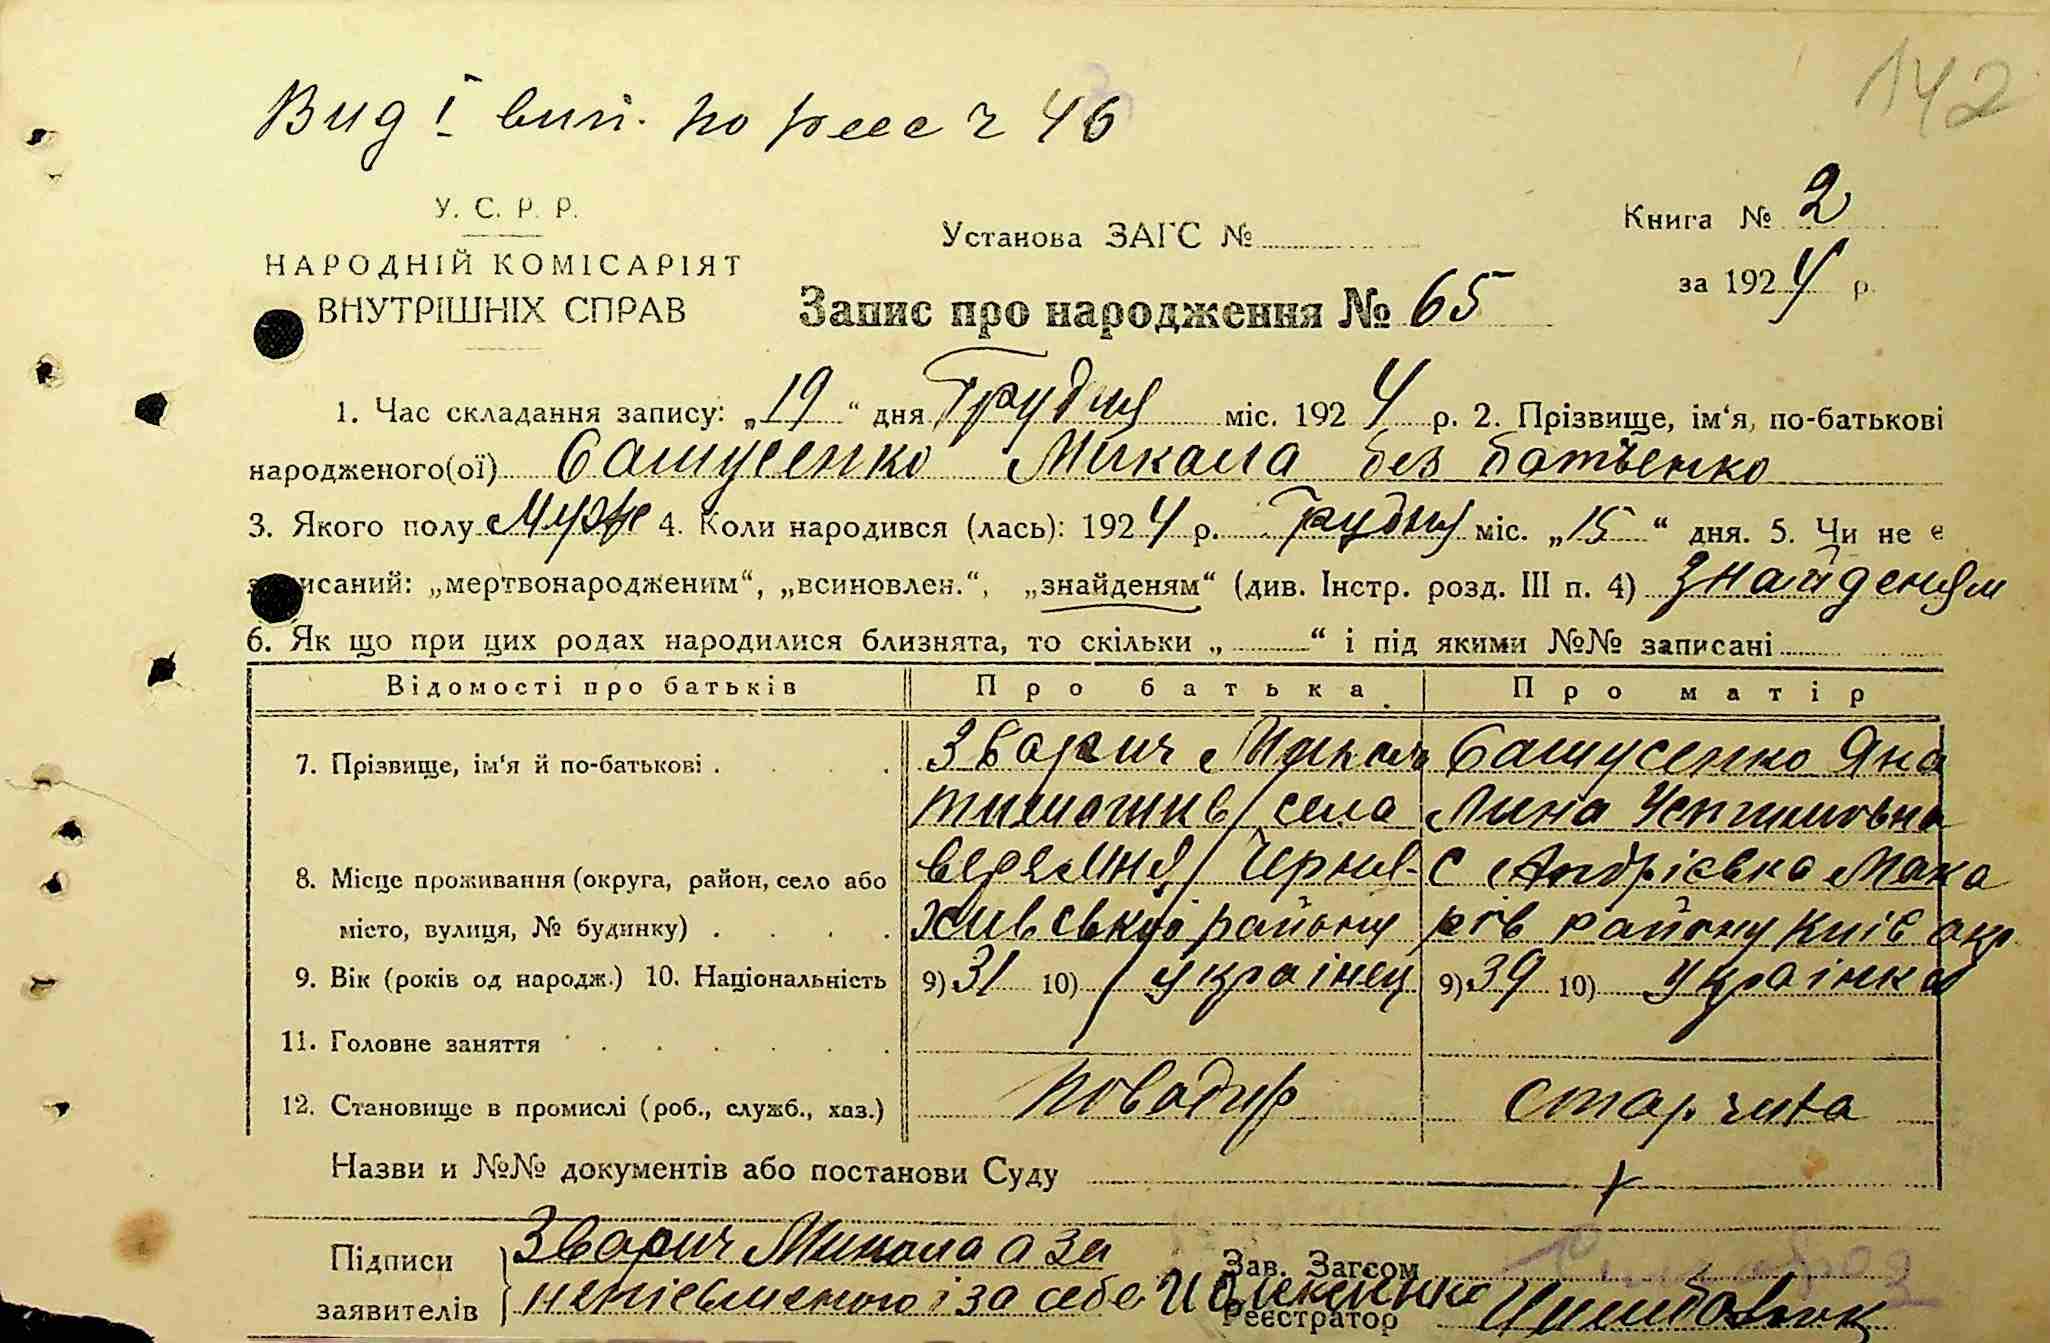 142
Вид І вип. по реєс ч 46
У. С. Р. Р.
НАРОДНІЙ КОМІСАРІЯТ
ВНУТРІШНІХ СПРАВ
Установа ЗАГС №
Книга № 2
за 1924 р.
Запис про народження № 65
1. Час складання запису: „19“ дня Грудня міс. 1924 р. 2. Прізвище, ім‘я, по-батькові
народженого(ої) Башусенко Микола без батченко
3. Якого полу Муж 4. Коли народився (лась): 1924 р. Грудня міс. „15“ дня. 5. Чи не є
записаний: „мертвонародженим“, „всиновлен.“, „знайденям“ (див. Інстр. розд. III п. 4) Знайденям
6. Як що при цих родах народилися близнята, то скільки „ “ і під якими №№ записані
Відомості про батьків Про батька Про матір
7. Прізвище, ім‘я й по-батькові Зварич Микола Башусенко Яна
села Лина
8. Місце проживання (округа, район, село або Черня- С Андрієвка Мака
місто, вулиця, № будинку) хивський району рів району Київ окр
9. Вік (років од народж.) 10. Національність 9) 31 10) Українец 9) 39 10) Українка
11. Головне заняття
12. Становище в промислі (роб., служб., хаз.) Поводир Старчиха
Назви и №№ документів або постанови Суду
Підписи Зварич Микола а за Зав. Загсом
заявителів неписьменого і за себе Реєстратор